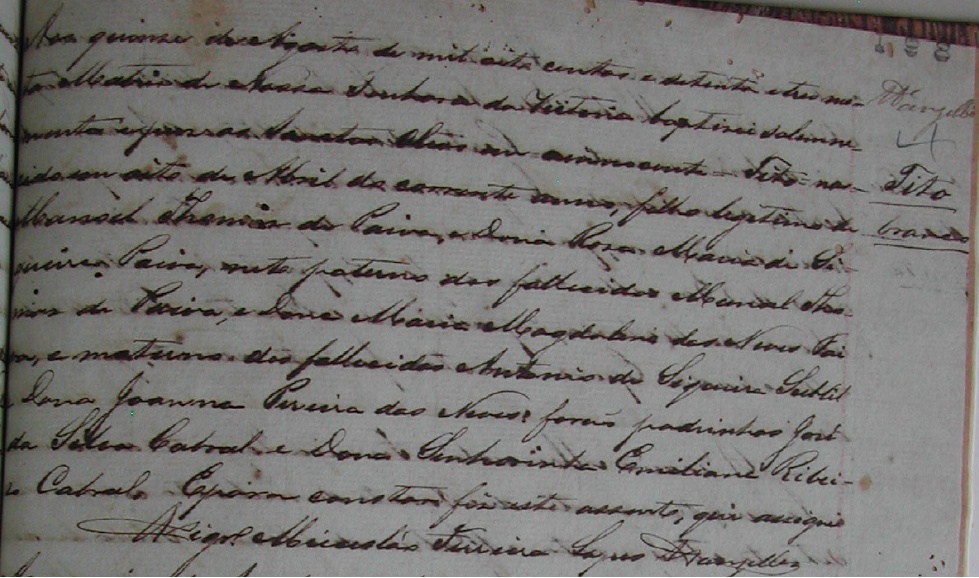 Aos quinze de Agosto de mil oito centos e setenta e tres nes-
ta Matriz de Nossa Senhora da Victoria baptizei solemne-
mente e puz os Santos Oleos ao innocente Tito nas-
cido em oito de Abril do corrente anno, filho legitimo de
Manoel Thomás de Paiva, e Dona Rosa Maria de Si-
queira Paiva, neto paterno dos fallecidos Manoel Tho-
más de Paiva, e Dona Maria Magdalena das Neves Pai
va, e materno dos fallecidos Antonio de Siqueira Subtil
e Dona Joanna Pereira das Neves: forão padrinhos José
da Silva Cabral e Dona Senhorinha Emiliana Ribei-
ro Cabral. E para constar fiz este assento, que assignei
O Vigrº Ferreira Lopes
Tito
branco
188